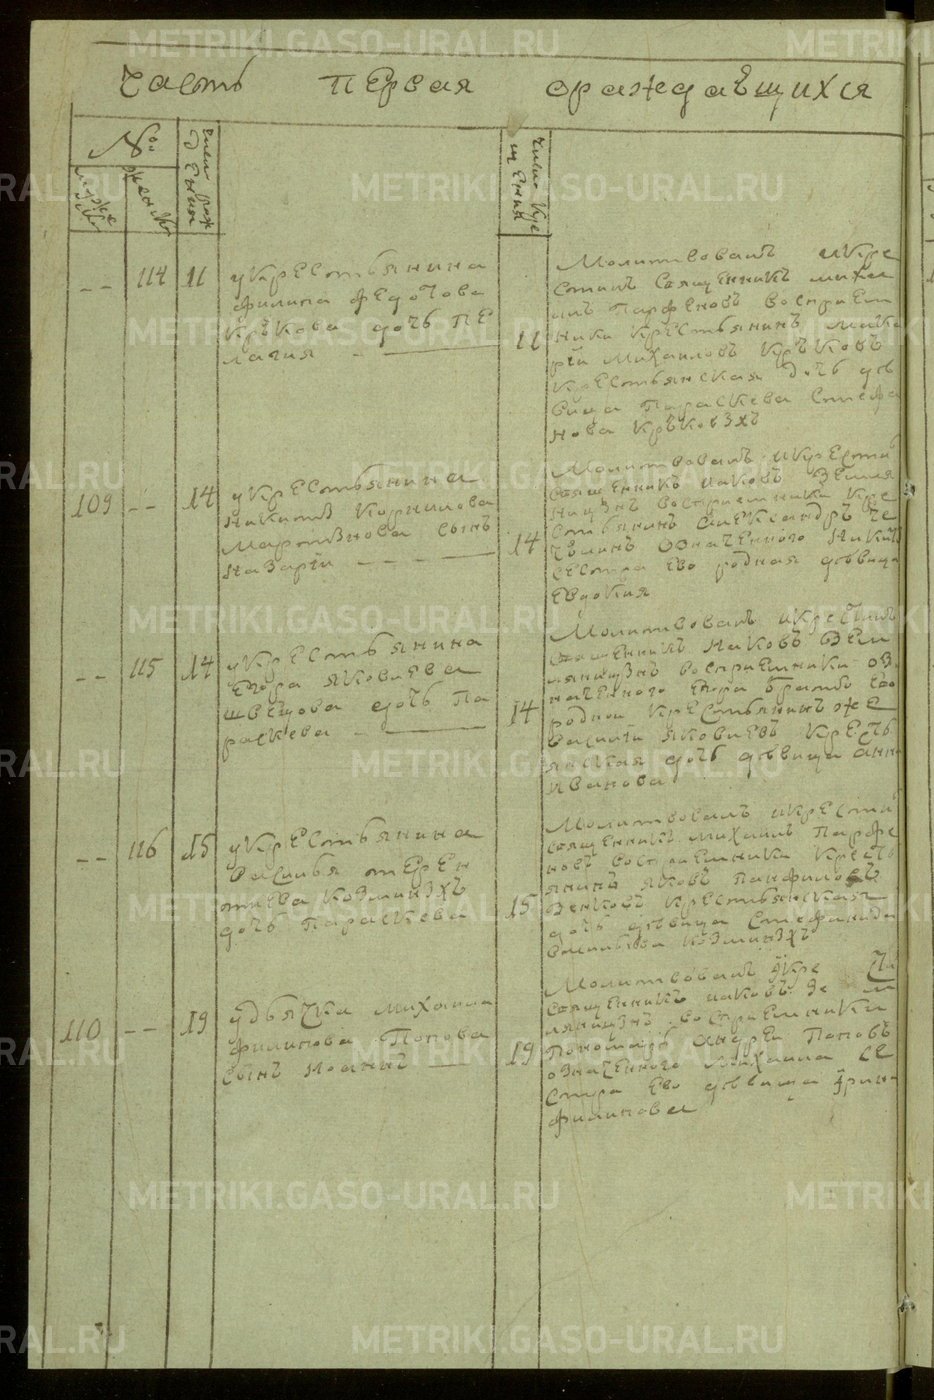 METRIKI.GASO-URAL.RU
часть первая ораждавшихся
№.
мужск
женск
число раж дения
число кре щения
-- 114 11
укрестьянина
филипа федотова
Крѣкова дочь Пе
лагия
11
Молитвовалъ икре
стилъ Священникъ михаи
лъ Парфеновъ восприем
ники крестьянинъ мака
рий Михаиловъ Крѣковъ
крестьянская дочь дѣ
вица Параскева Стефа
нова Крѣковзхъ
109 -- 14
укрестьянина
Никиты Корнилова
Мартынова сынъ
Назарий
14
Молитвовалъ икрестил
священникъ иаковъ Земля
ницынъ восприемники кре
стьянинъ александръ
означенного Никит
сестра ево родная дѣвица
Евдокия
-- 115 14
укрестьянина
Егора яковлева
швецова дочь Па
раскева
14
Молитвовалъ икрестилъ
священникъ иаковъ Земл
яницынъ восприемники оз
наченного Егора братъ ево
родной крестьянинъ же
Василий яковлевъ кресть
янская дочь дѣвица анн
иванова
-- 116 15
укрестьянина
Василья терен
тиева Козминзхъ
дочь Параскева
15
Молитвовалъ икрестил
священникъ михаилъ Парфе
новъ восприемники кресть
янинъ яковъ Панфиловъ
Зенковъ крестьянская
дочь дѣвица Стефанида
Васильева Козминзхъ
110 -- 19
удьячка михаила
филипова Попова
сынъ иоаннъ
19
Молитвовалъ икре
священникъ иаковъ Зе м
ляницынъ восприемники
Пономарь андрей Поповъ
означенного Михаила се
стра ево дѣвица ирин
филипова